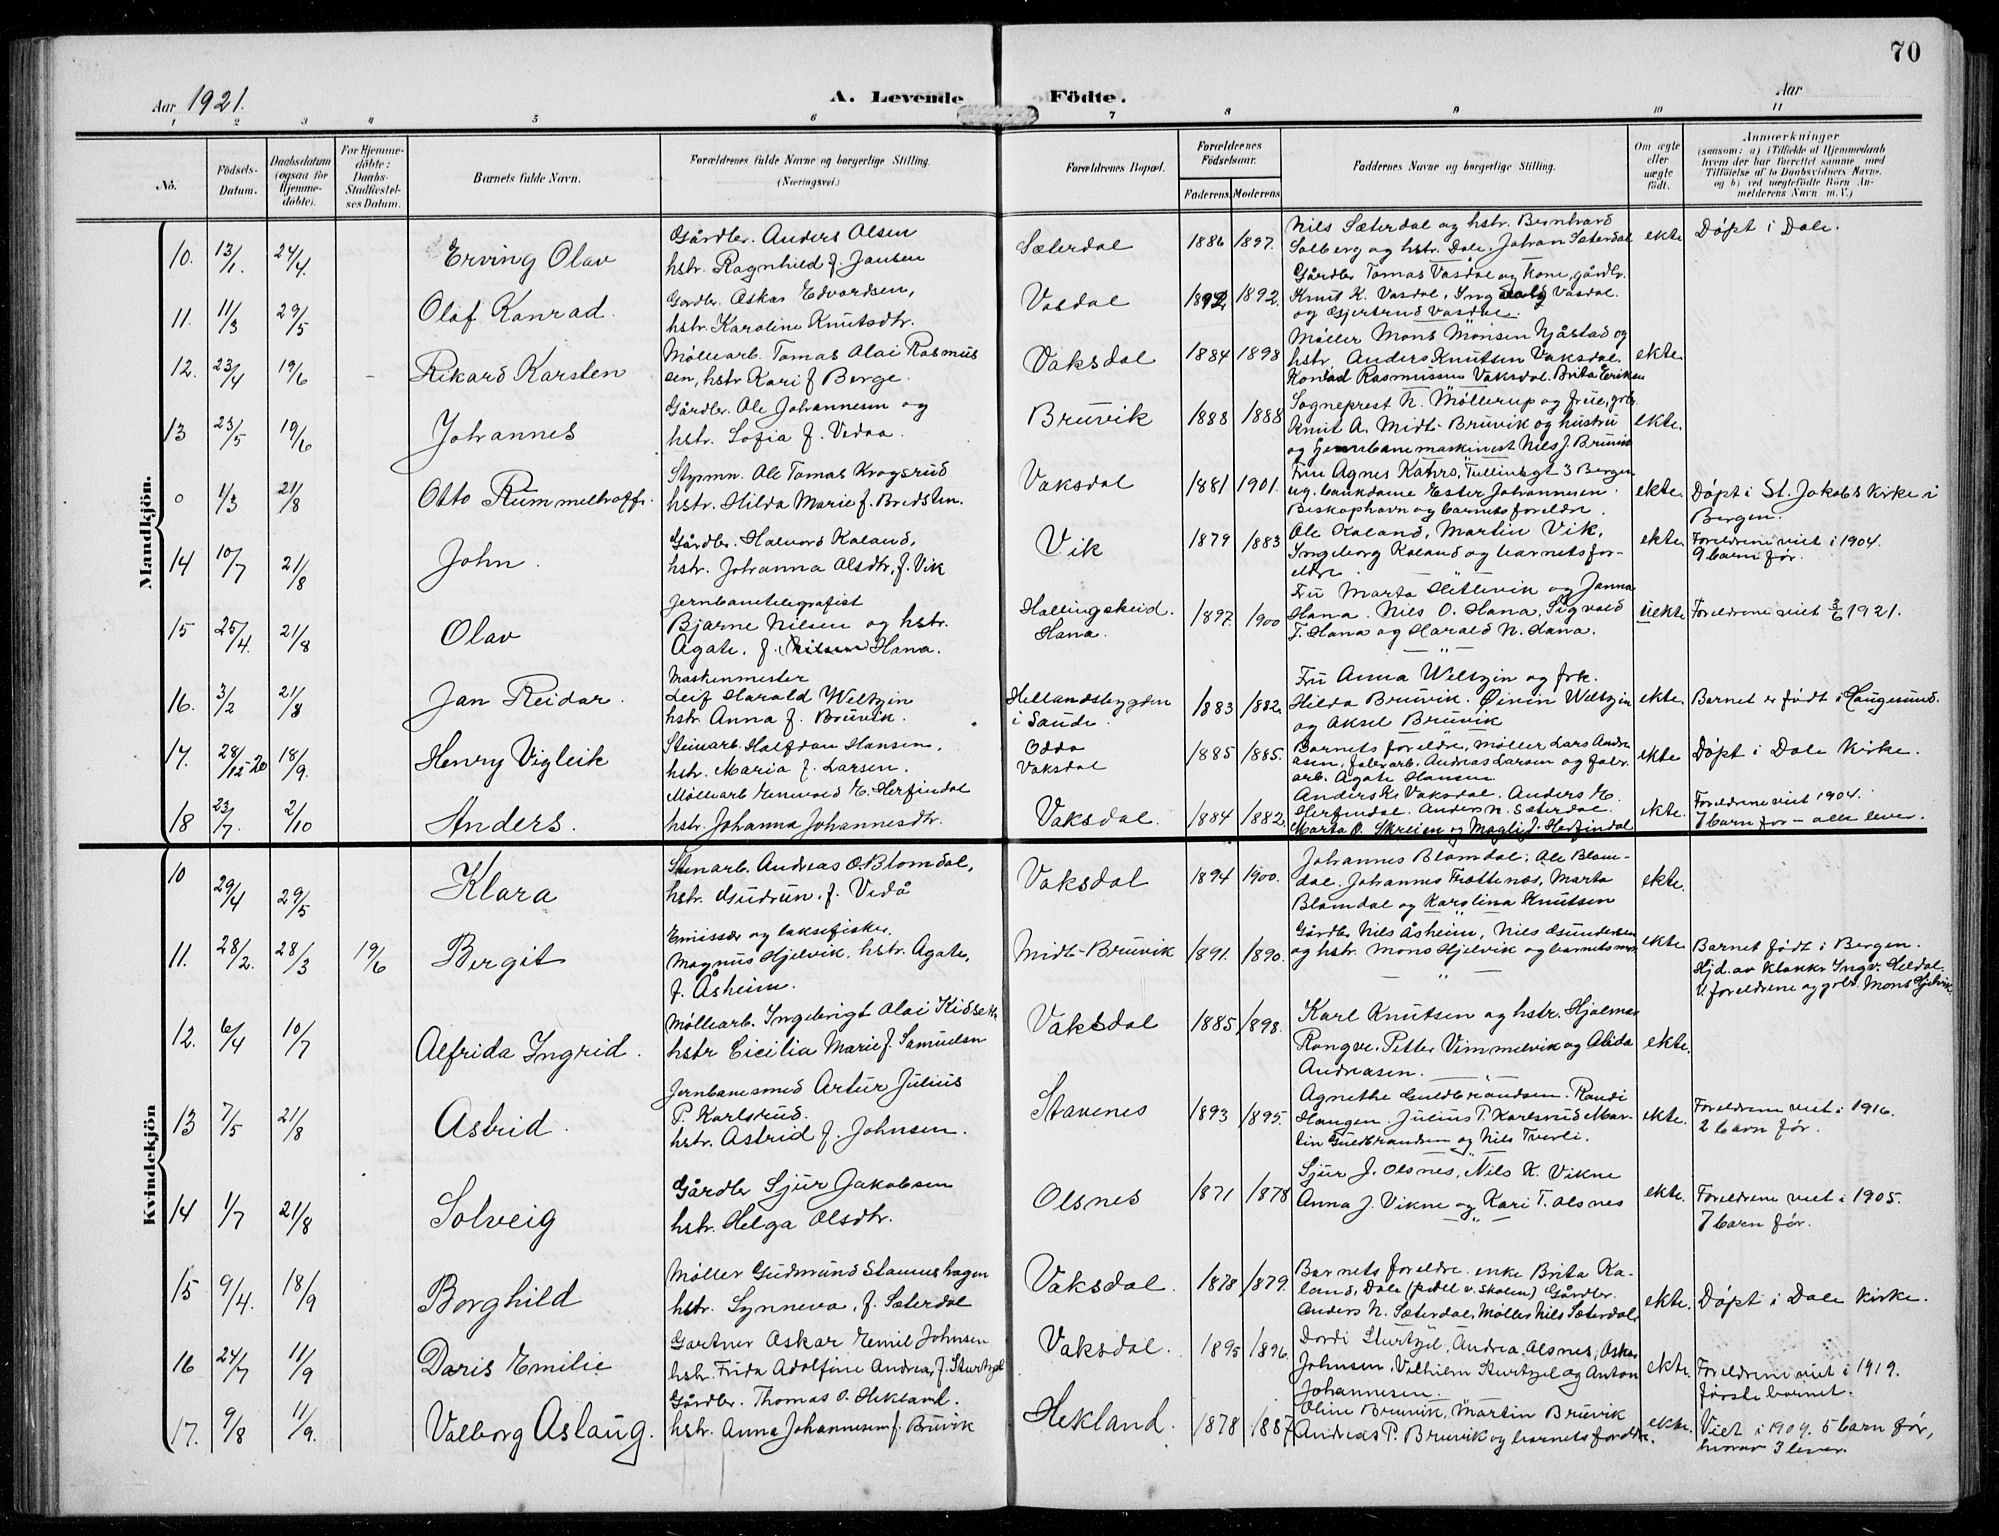 70
Aar 1921.
A. Levende Födte.
Aar
1 2 3 4 5 6 7 8 9 10 11
No.
Födsels-Datum.
Daabsdatum (ogsaa for Hjemmedöbte).
For Hjemmedöbte: Daabs-Stadfæstelses Datum.
Barnets fulde Navn.
Forældrenes fulde Navne og borgerlige Stilling.
(Næringsvei.)
Forældrenes Bopæl.
Forældrenes Födselsaar.
Faderens Moderens
Faddernes Navne og borgerlige Stilling.
Om ægte eller uægte födt.
Anmærkninger
(saasom: a) i Tilfælde af Hjemmedaab hvem der har forrettet samme, med Tilföielse af to Daabsvidners Navne, og b) ved uægtefödte Börn Anmelderens Navn m. V.)
Mandkjön.
10. 13/1 24/4. Erving Olav
Gårdbr. Anders Olsen
hstr. Ragnhild f. Jansen
Sæterdal 1886 1897.
Nils Sæterdal og hstr. Bernhard
Solberg og hstr. Dale, Johan Sæterdal
ekte Døpt i Dale.
11. 11/3 29/5 Olaf Konrad.
Gårdbr. Askar Edvardsen,
hstr. Karoline Knutsdtr.
Vasdal 1892 1892.
Gårdbr Tomas Vasdal og kone, gårdbr.
Knut K. Vasdal, Vasdal.
og Gjertrud Vasdal.
12. 23/4 19/6 - Rikard Karsten
Møllearb. Tomas Olai Rasmus
sen, hstr Kari f Berge.
Vaksdal 1884 1898
Møller Mons Monsen Njåstad og
hstr. Anders Knutsen Vaksdal.
Konrad Rasmussen Vaksdal. Brita Eriksen
ekte.
13 23/5 19/6 Johannes
Gårdbr. Ole Johannesen og
hstr. Sofia f. Vedaa.
Bruvik 1888 1888
Sogneprest N. Møllerup og frue, grbr
Knut A. Midt-Bruvik og hustru
og jernbanemaskinist Nils J. Bruvik
ekte.
0 1/3 21/8 Otto Rummelhoff.
Styrmn. Ole Tomas Krogsrud
hstr. Hilda Marie f. Bredsten.
Vaksdal 1881 1901.
Fru Agnes Kahrs, Tullinsgt 3 Bergen
ug. bankdame Ester Johannesen.
Biskophavn og barnets foreldre.
ekte. Døpt i St. Jakobs kirke i
Bergen.
14 10/7 21/8 John.
Gårdbr. Halvord Kaland,
hstr. Johanna Olsdtr, f. Vik
Vik 1879 1883
Ole Kaland, Martin Vik,
Ingeborg Kaland og barnets for-
eldre.
ekte. Foreldrene viet i 1904.
9 barn før.
15 25/4. 21/8 Olav
Jernbanetelegrafist
Bjarne Nilsen og hstr.
Agate, f. Hana.
Hallingskeid.
Hana. 1897. 1900
Fru Marta Hitlevik og Janna
Hana. Nils O. Hana, Sigvald
T. Hana og Harald N. Hana.
uekte Foreldrene viet 3/6 1921.
16. 3/2 21/8 Jan Reidar.
Maskinmester
Leif Harald Weltzin
hstr. Anna f. Bruvik.
Hellandsbygden
i Saude. 1883 1882.
Fru Anna Weltzin og frk.
Hilda Bruvik. Øivin Weltzin
og Aksel Bruvik
ekte. Barnet er født i Haugesund.
17. 28/12-20 18/9. Henry Vigleik
Steinarb. Halfdan Hansen,
hstr. Maria f. Larsen.
Odda
Vaksdal 1885 1885.
Barnets foreldre, møller Lars Andre
asen, fabr.arb. Andreas Larsen og fabr.
arb. Agate Hansen
ekte Døpt i Dale Kirke.
18 23/7. 2/10 Anders.
Møllearb Enevald E. Herfindal
hstr. Johanna Johannesdtr.
Vaksdal. 1884 1882.
Anders K. Vaksdal. Anders E.
Herfindal. Anders N. Sæterdal
Marta O. Skreien og Magli J. Herfindal
ekte. Foreldrene viet 1904.
7 barn før - alle lever.
Kvindekjön
10 29/4 29/5 Klara
Stenarb. Andreas O. Blomdal,
hstr. Gudrun, f. Vedå
Vaksdal 1894 1900.
Johannes Blomdal, Ole Blom-
dal. Johannes Trættenæs, Marta
Blomdal og Karolina Knutsen
ekte.
11. 28/2. 28/3 19/6 Bergit
Emissær og laksefisker
Magnus Hjelvik, hstr. Agate,
f. Åsheim.
Midt-Bruvik 1891. 1890.
Gårdbr Nils Åsheim, Nils Gundersen
og hstr. Mons Hjelvik og barnets mor
ekte. Barnet født i Bergen.
Hjd. av klokkr Ingv. Heldal
v. foreldrene og grbr. Mons Hjelvik
12. 6/4 10/7 Alfrida Ingrid.
Møllearb. Ingebrigt Olai
hstr Cicilia Marie f. Samuelsen
Vaksdal 1885 1898.
Karl Knutsen og hstr. Hjalmar
Rongve. Petter Vimmelvik og Alida
Andreasen.
ekte.
13 7/5 21/8 Astrid.
Jernbanesmed Artur Julius
P. Karlsrud.
hstr. Astrid f. Johnsen.
Stavenes 1893 1895.
Agnethe Guldbrandsen. Randi
Haugen, Julius P. Karlsrud Mar-
tin Guldbrandsen og Nils Tverli.
ekte. Foreldrene viet i 1916.
2 barn før.
14 1/7 21/8 Solveig
Gårdbr Sjur Jakobsen
hstr. Helga Olsdtr.
Olsnes 1871 1878
Sjur J. Olsnes, Nils K. Vikne
Anna J. Vikne og Kari T. Olsnes
ekte. Foreldrene viet i 1905.
7 barn før.
15 9/4. 18/9 Borghild
Møller Gudmund Stamneshagen
hstr. Synneva, f. Sæterdal
Vaksdal. 1878 1879.
Barnets foreldre. enke Brita Ka-
land, Dale (pedel v. skolen) Gårdbr.
Anders N. Sæterdal, Møller Nils Sæterdal
ekte. Døpt i Dale Kirke.
16 24/7 11/9 Daris Emilie
Gartner Askar Emil Johnsen
hstr. Frida Adolfine Andrea, f. Sturtzel
Vaksdal. 1895 1896.
Dordi Sturtzel, Andrea Olsnes, Oskar
Johnsen, Vilhelm Sturtzel og Anton
Johannesen.
ekte. Foreldrene viet i 1919.
første barnet.
17. 9/8 11/9. Valborg Aslaug.
Gårdbr. Thomas O. Hekland.
hstr. Anna Johannesen f. Bruvik
Hekland. 1878 1887
Oline Bruvik, Martin Bruvik
Andreas P. Bruvik og barnets foreldre.
ekte. Viet i 1909. 5 barn før,
hvorav 3 lever.